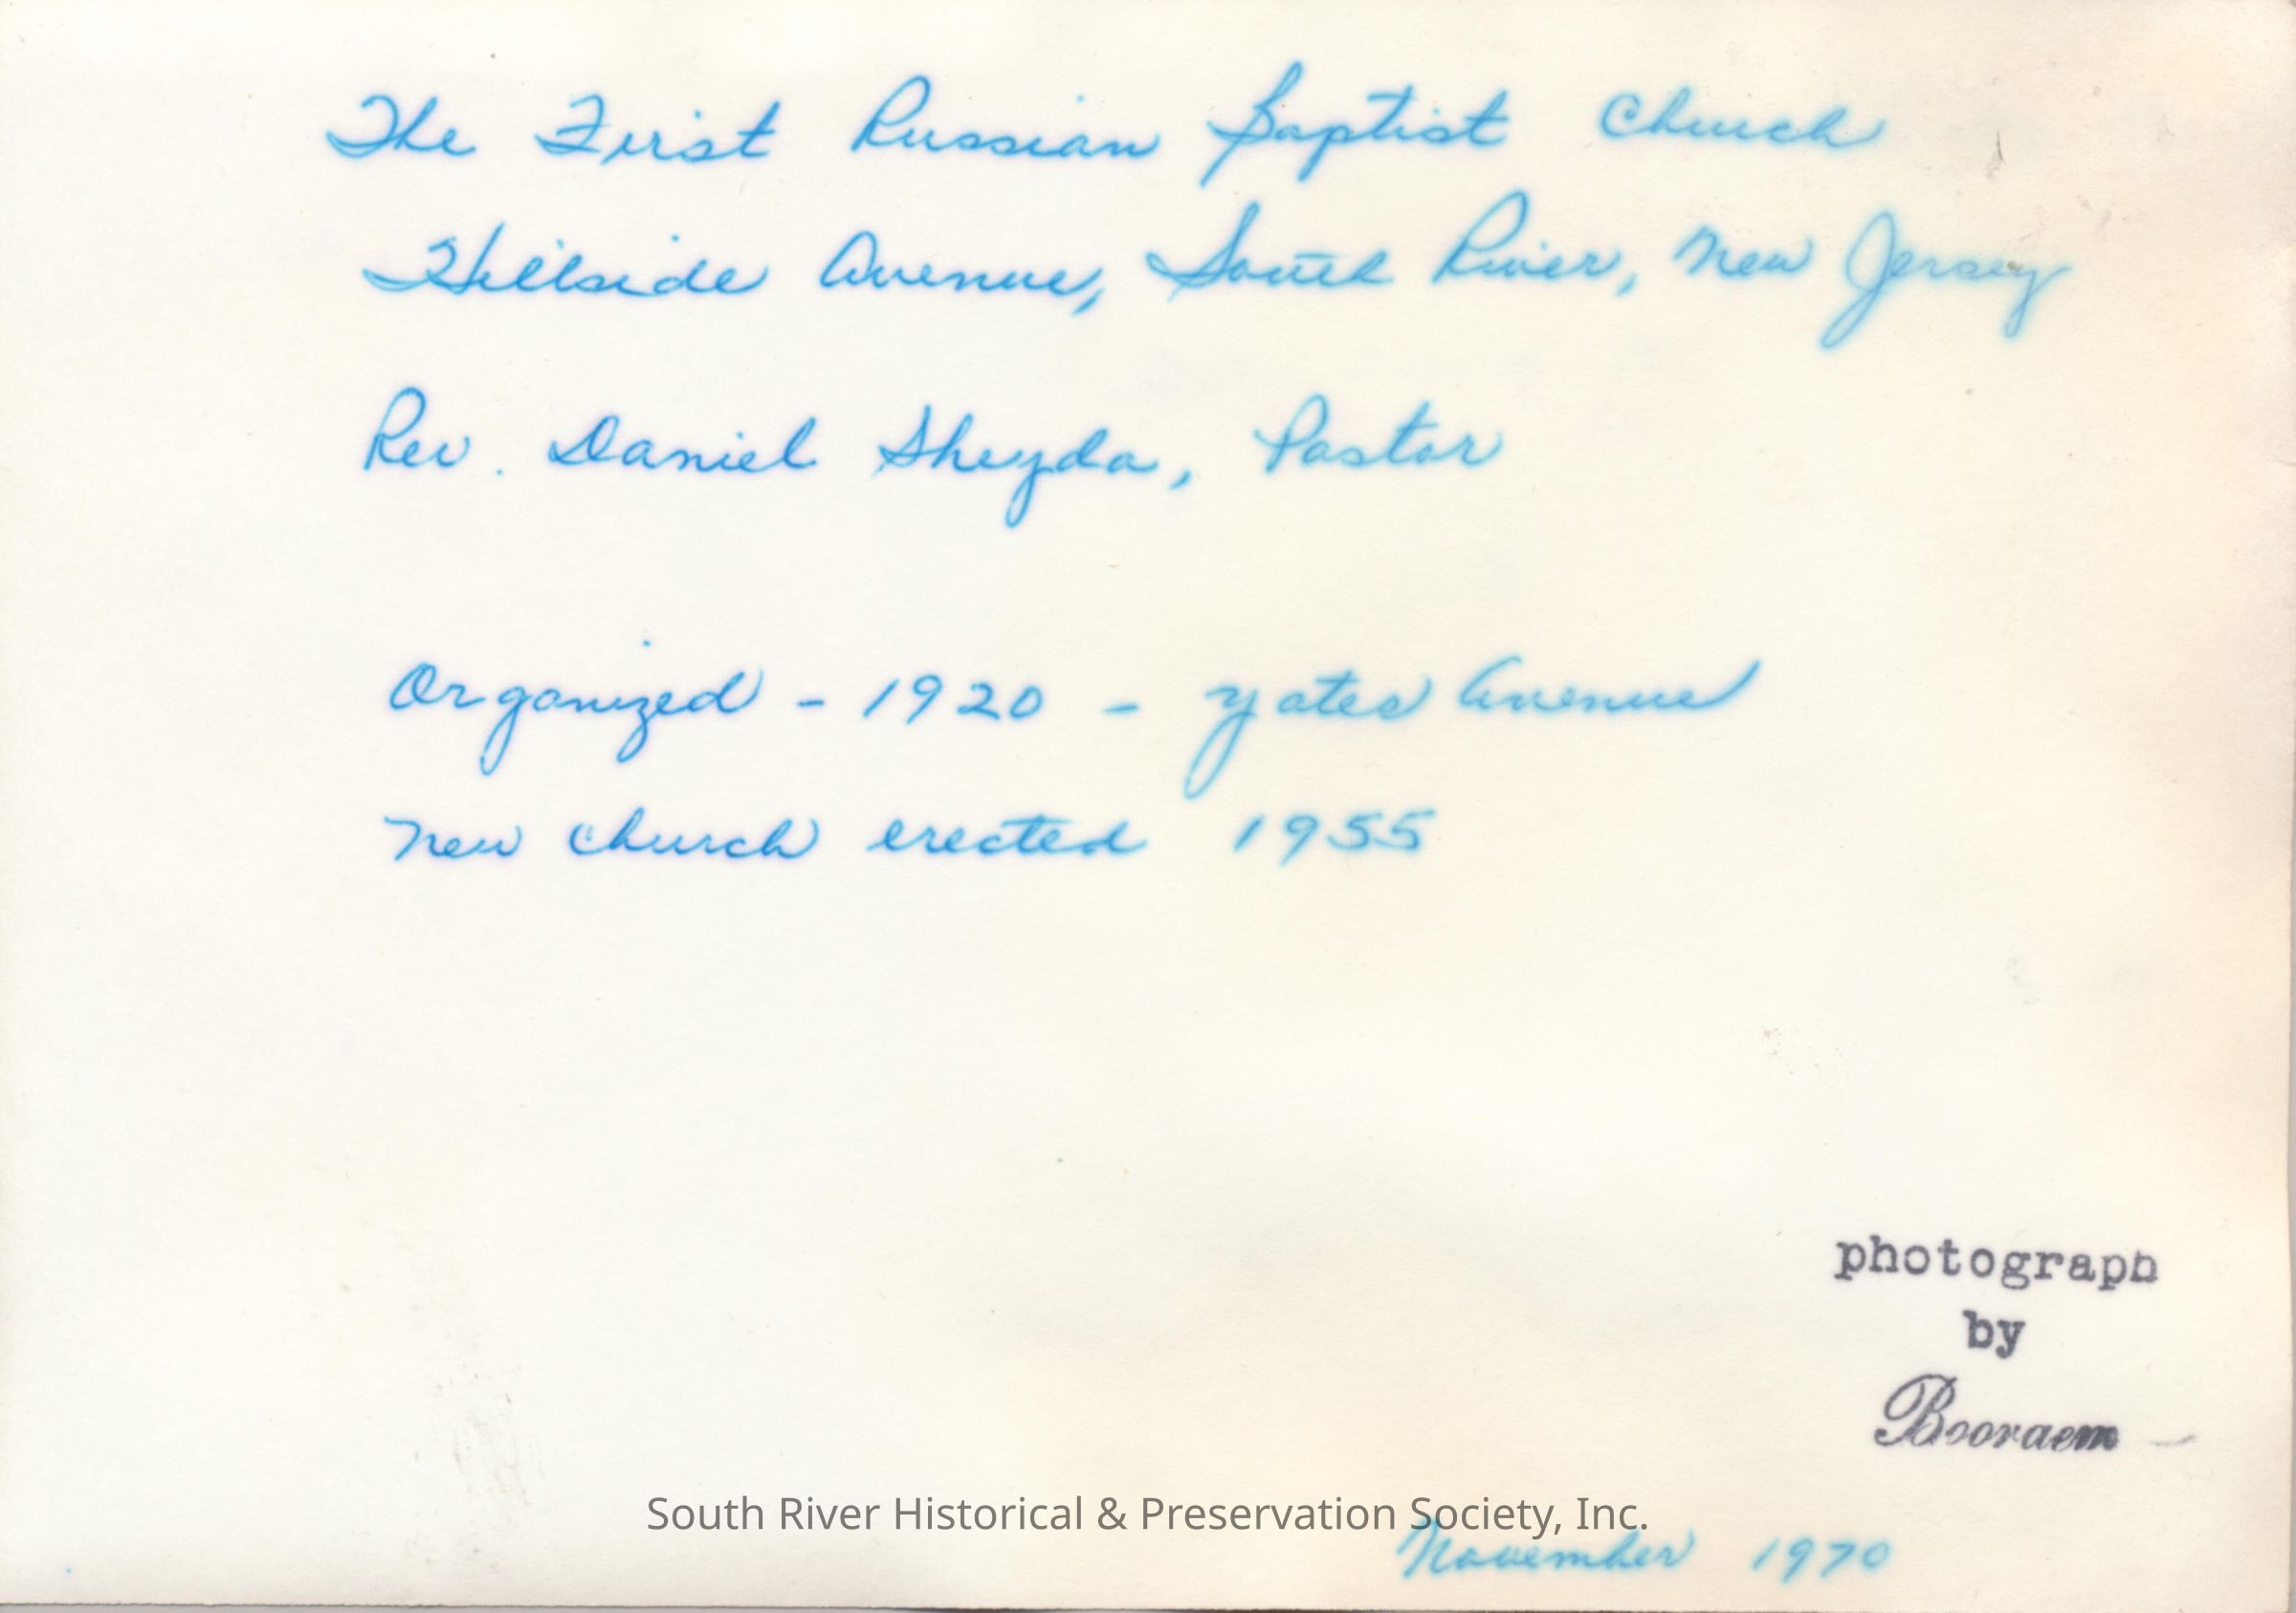 The First Russian Baptist Church
Hillside Avenue, South River, New Jersey
Rev. Daniel Sheyda, Pastor
Organized - 1920 - Yates Avenue
New church erected 1955
photograph
by
Booraem
South River Historical & Preservation Society, Inc.
November 1970